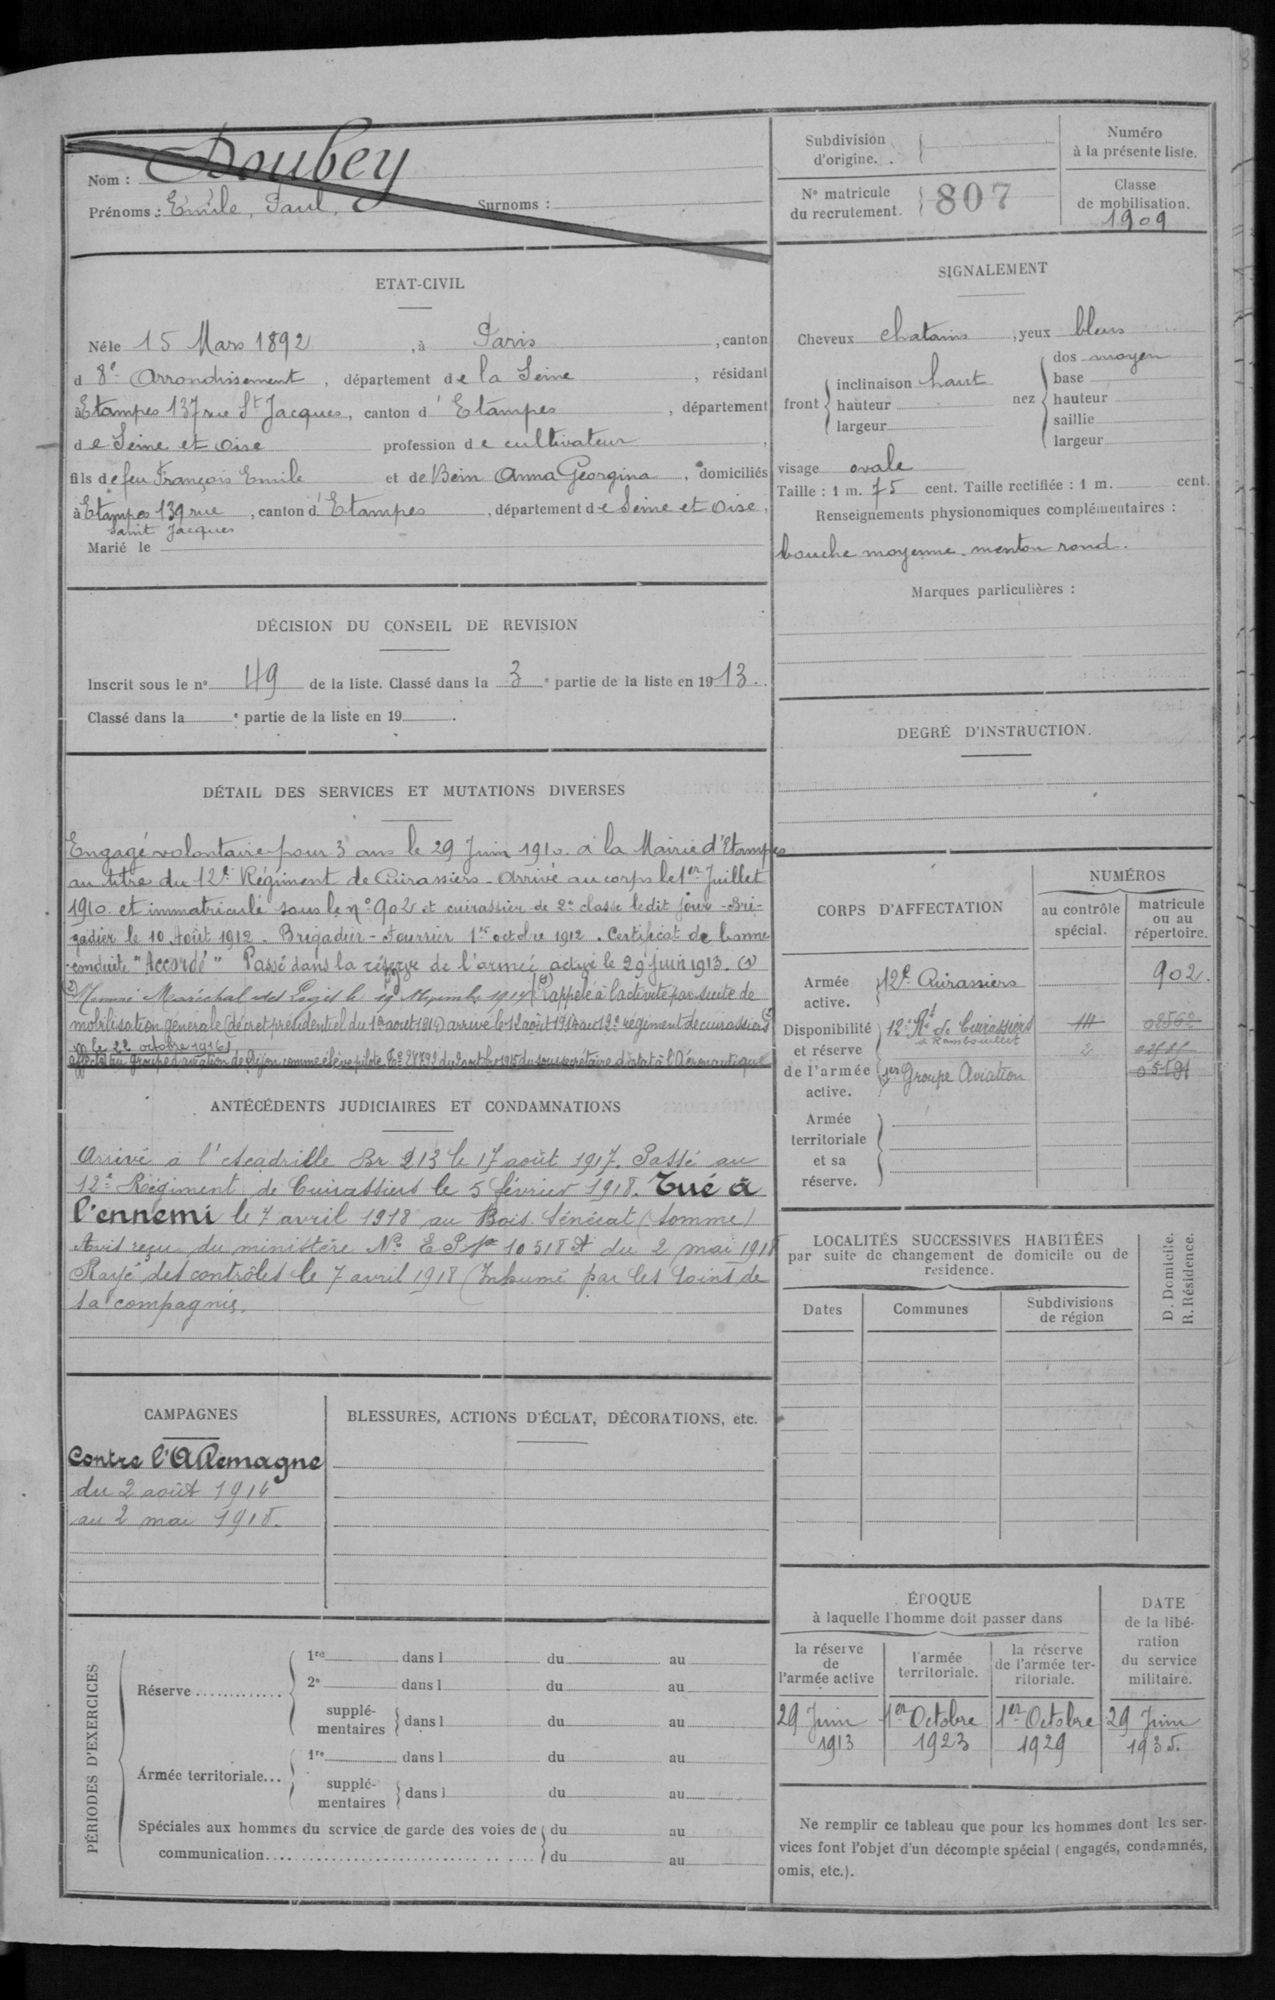 Nom : Doubey
Prénoms : Emile, Paul, Surnoms :
Subdivision d'origine.
Numéro à la présente liste.
N° matricule du recrutement. 807
Classe de mobilisation. 1909
ETAT-CIVIL
Né le 15 Mars 1892, à Paris, canton
d 8e Arrondissement, département de la Seine, résidant
à Etampes 137 rue St Jacques, canton d'Etampes, département
de Seine et Oise profession de cultivateur,
fils de feu François Emile et de Bein Anna Georgina, domiciliés
à Etampes 139 rue Saint Jacques, canton d'Etampes, département de Seine et Oise,
Marié le
SIGNALEMENT
Cheveux chatains, yeux bleus
front inclinaison haut hauteur largeur
nez dos moyen base hauteur saillie largeur
visage ovale
Taille : 1 m. 75 cent. Taille rectifiée : 1 m. cent.
Renseignements physionomiques complémentaires :
bouche moyenne. menton rond.
Marques particulières :
DÉCISION DU CONSEIL DE REVISION
Inscrit sous le n° 49 de la liste. Classé dans la 3e partie de la liste en 1913.
Classé dans la e partie de la liste en 19 .
DEGRÉ D'INSTRUCTION.
DÉTAIL DES SERVICES ET MUTATIONS DIVERSES
Engagé volontaire pour 3 ans le 29 Juin 1910. à la Mairie d'Etampes
au titre du 12e Régiment de Cuirassiers - Arrivé au corps le 1er Juillet
1910. et immatriculé sous le n° 902 et cuirassier de 2e classe le dit jour - Bri-
gadier le 10 Août 1912 - Brigadier-Fourrier 1er octobre 1912. Certificat de bonne
conduite "Accordé" Passé dans la réserve de l'armée active le 29 Juin 1913. (1)
Nommé Maréchal des Logis le 1914 (1) Rappelé à l'activité par suite de
mobilisation générale (décret présidentiel du 1er aout 1914) arrivé le 12 août 1914 au 12e régiment de cuirassiers
le 22 octobre 1916
affecté au groupe d'aviation de Dijon comme élève pilote du sous secrétaire d'état à l'Aéronautique
ANTÉCÉDENTS JUDICIAIRES ET CONDAMNATIONS
Arrivé à l'escadrille Br 213 le 17 août 1917. Passé au
12e Régiment de Cuirassiers le 5 février 1918. Tué à
l'ennemi le 7 avril 1918 au Bois Sénécat (Somme)
Avis reçu du ministère No E P 10518 du 2 mai 1918
Rayé des contrôles le 7 avril 1918 (Inhumé par les soins de
sa compagnie.
CORPS D'AFFECTATION
NUMÉROS
au contrôle spécial.
matricule ou au répertoire.
Armée active. 12e Cuirassiers 902.
Disponibilité et réserve de l'armée active. 12e Rt de Cuirassiers
à Rambouillet 2
1er Groupe Aviation
Armée territoriale et sa réserve.
LOCALITÉS SUCCESSIVES HABITÉES
par suite de changement de domicile ou de résidence.
Dates
Communes
Subdivisions de région
D. Domicile.
R. Résidence.
CAMPAGNES
Contre l'Allemagne
du 2 août 1914
au 2 mai 1918.
BLESSURES, ACTIONS D'ÉCLAT, DÉCORATIONS, etc.
PÉRIODES D'EXERCICES
Réserve
1re dans l du au
2e dans l du au
supplémentaires dans l du au
Armée territoriale...
1re dans l du au
supplémentaires dans l du au
Spéciales aux hommes du service de garde des voies de communication
du au
du au
ÉPOQUE
à laquelle l'homme doit passer dans
la réserve de l'armée active
l'armée territoriale.
la réserve de l'armée territoriale.
DATE de la libération du service militaire.
29 Juin 1913
1er Octobre 1923
1er Octobre 1929
29 Juin 1935.
Ne remplir ce tableau que pour les hommes dont les ser-
vices font l'objet d'un décompte spécial (engagés, condamnés,
omis, etc.).